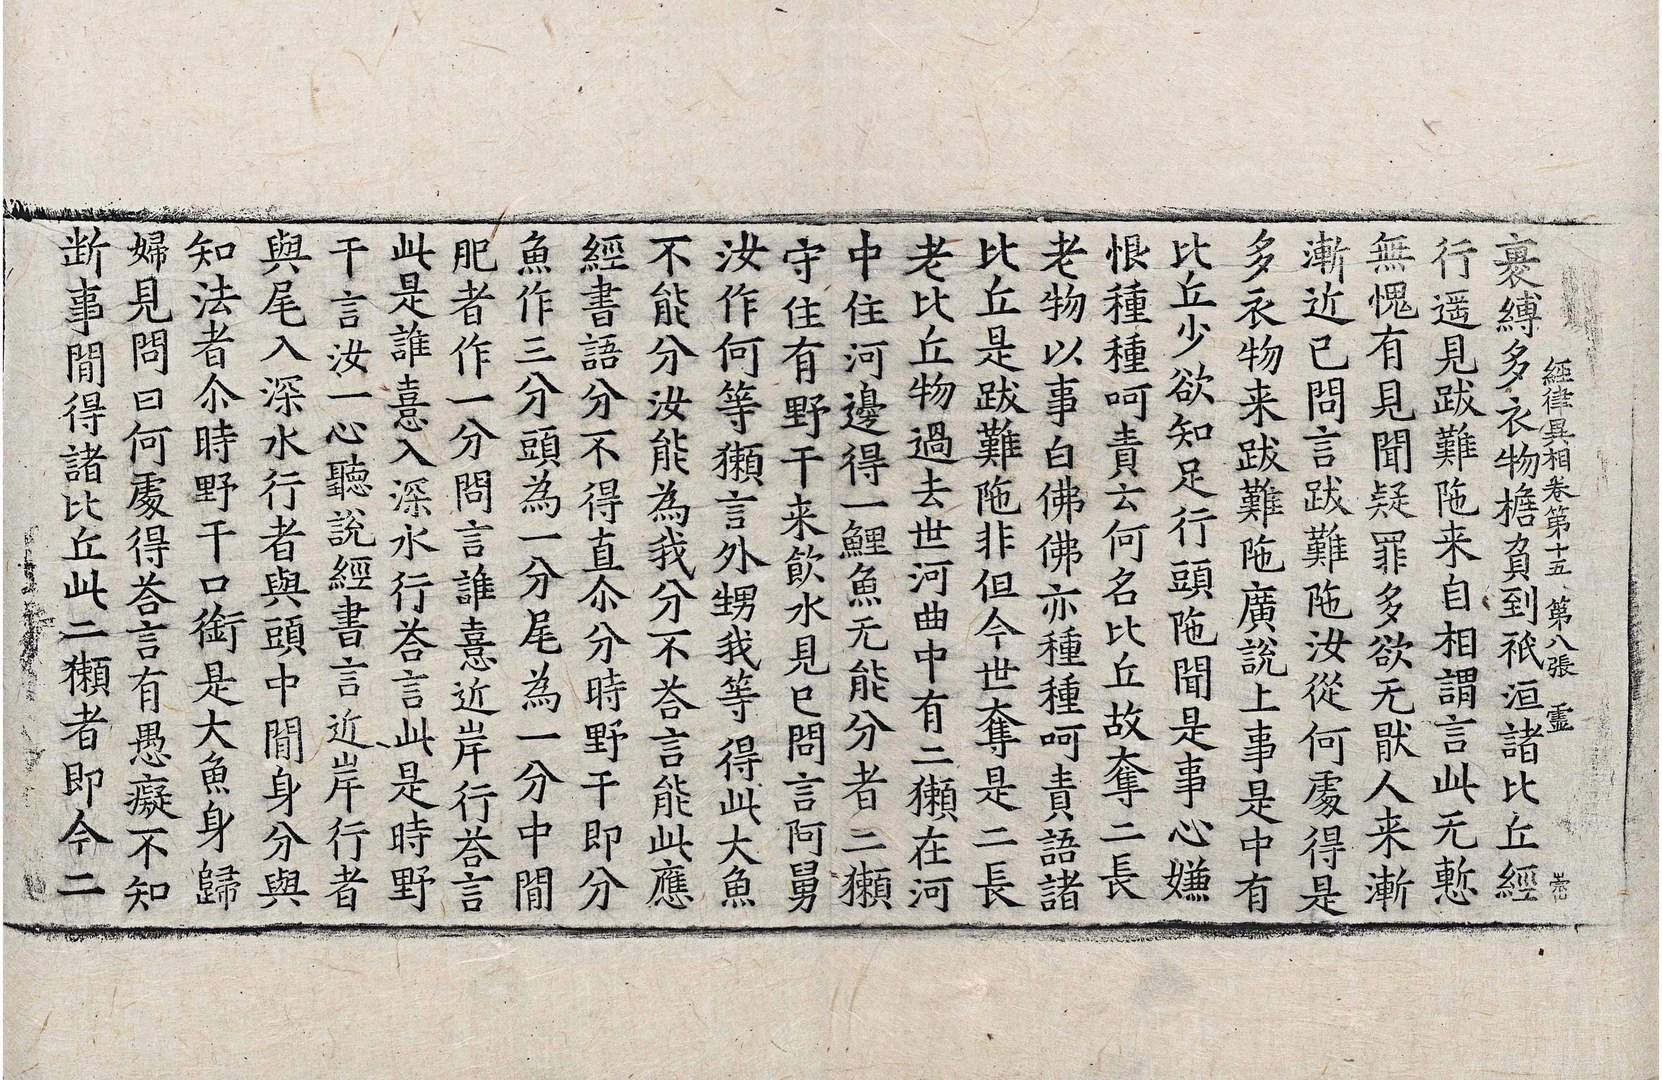 經律異相卷第十五 第八張 霊
裹縛多衣物檐負到祇洹諸比丘經
行遥見跋難陁来自相謂言此无慙
無愧有見聞疑罪多欲无猒人来漸
漸近已問言跋難陁汝從何處得是
多衣物来跋難陁廣說上事是中有
比丘少欲知足行頭陁聞是事心嫌
恨種種呵責云何名比丘故奪二長
老物以事白佛佛亦種種呵責語諸
比丘是跋難陁非但今世奪是二長
老比丘物過去世河曲中有二獺在河
中住河邊得一鯉魚无能分者二獺
守住有野干来飲水見已問言阿舅
汝作何等獺言外甥我等得此大魚
不能分汝能為我分不荅言能此應
經書語分不得直尒分時野干即分
魚作三分頭為一分尾為一分中間
肥者作一分問言誰憙近岸行荅言
此是誰憙入深水行荅言此是時野
干言汝一心聽說經書言近岸行者
與尾入深水行者與頭中間身分與
知法者尒時野干口銜是大魚身歸
婦見問曰何處得荅言有愚癡不知
断事間得諸比丘此二獺者即今二